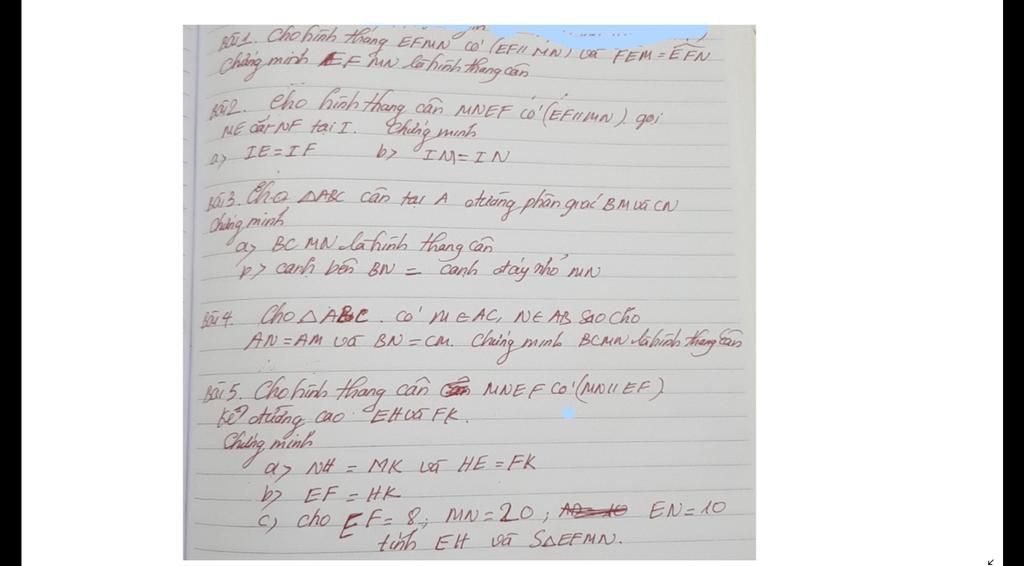 Bài 1. Cho hình thang EFMN có (EF // MN) và FEM = EFN
Chứng minh EFMN là hình thang cân
Bài 2. Cho hình thang cân MNEF có (EF // MN) gọi
ME cắt NF tại I. Chứng minh
a> IE = IF b> IM = IN
Bài 3. Cho △ABC cân tại A đường phân giác BM và CN
Chứng minh
a> BCMN là hình thang cân
b> cạnh bên BN = cạnh đáy nhỏ MN
Bài 4. Cho △ABC. có M ∈ AC, N ∈ AB sao cho
AN = AM và BN = CM. Chứng minh BCMN là hình thang cân
Bài 5. Cho hình thang cân MNEF có (MN // EF)
Kẻ đường cao EH và FK.
Chứng minh
a> NH = MK và HE = FK
b> EF = HK
c> cho EF = 8; MN = 20; EN = 10
tính EH và S△EFMN.